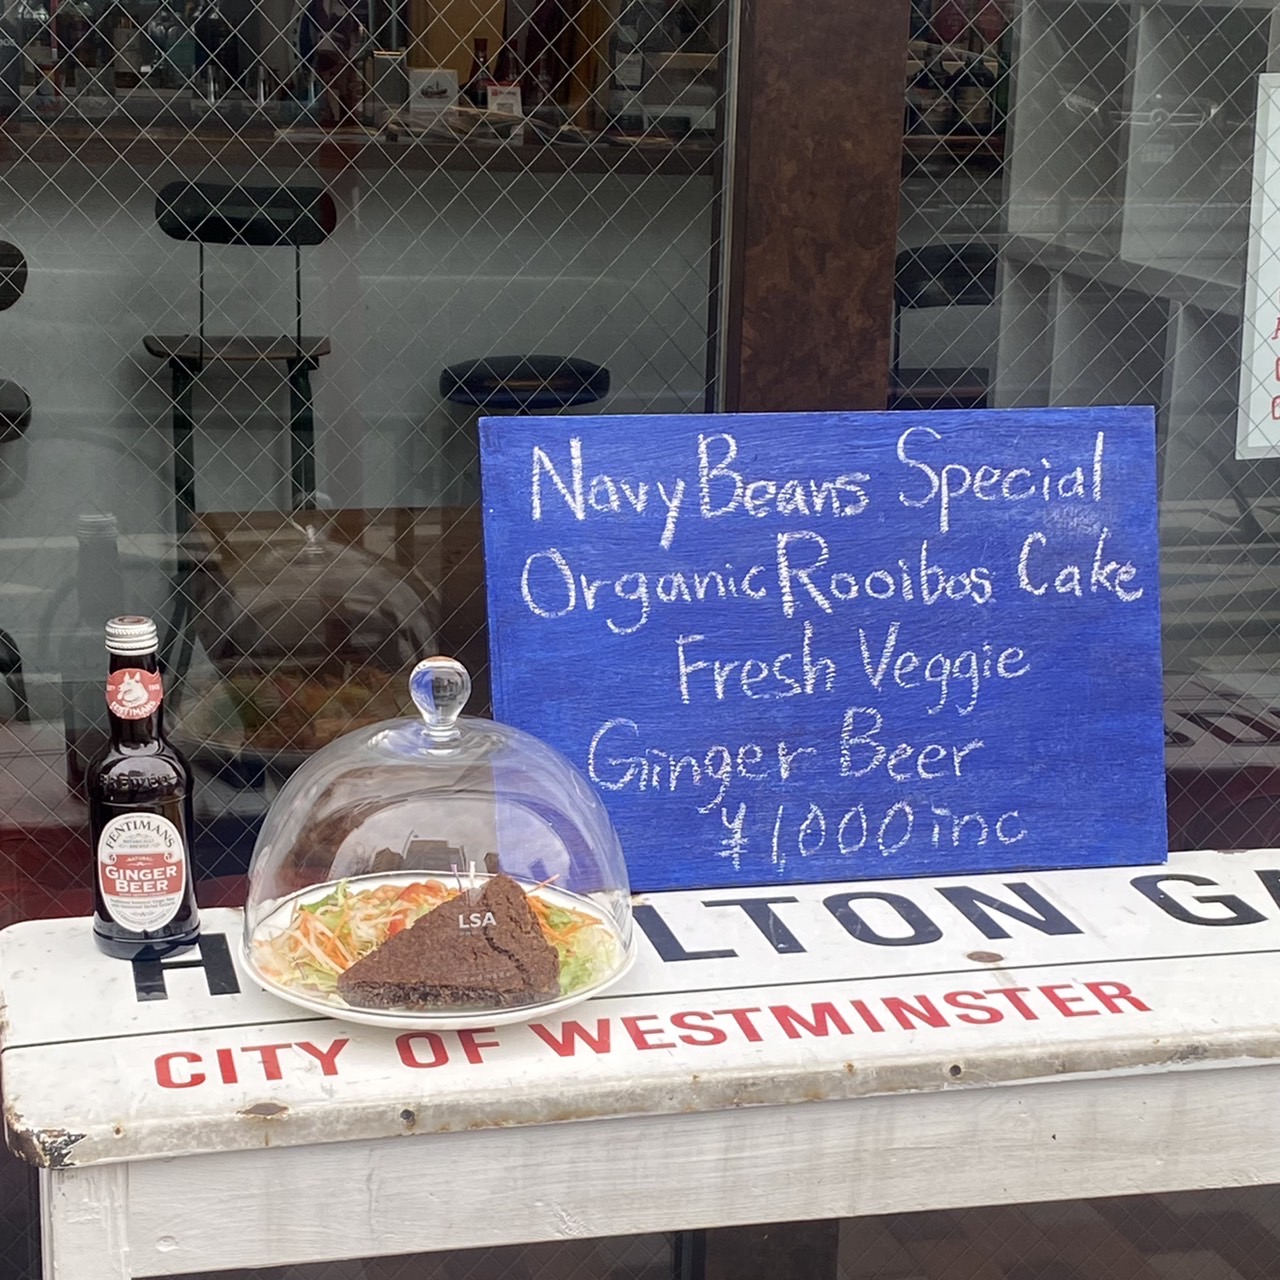 Navy Beans Special
Organic Rooibos Cake
Fresh Veggie
Ginger Beer
¥1,000 inc
FENTIMANS
FENTIMANS
NATURAL
GINGER
BEER
LSA
H LTON GA
CITY OF WESTMINSTER